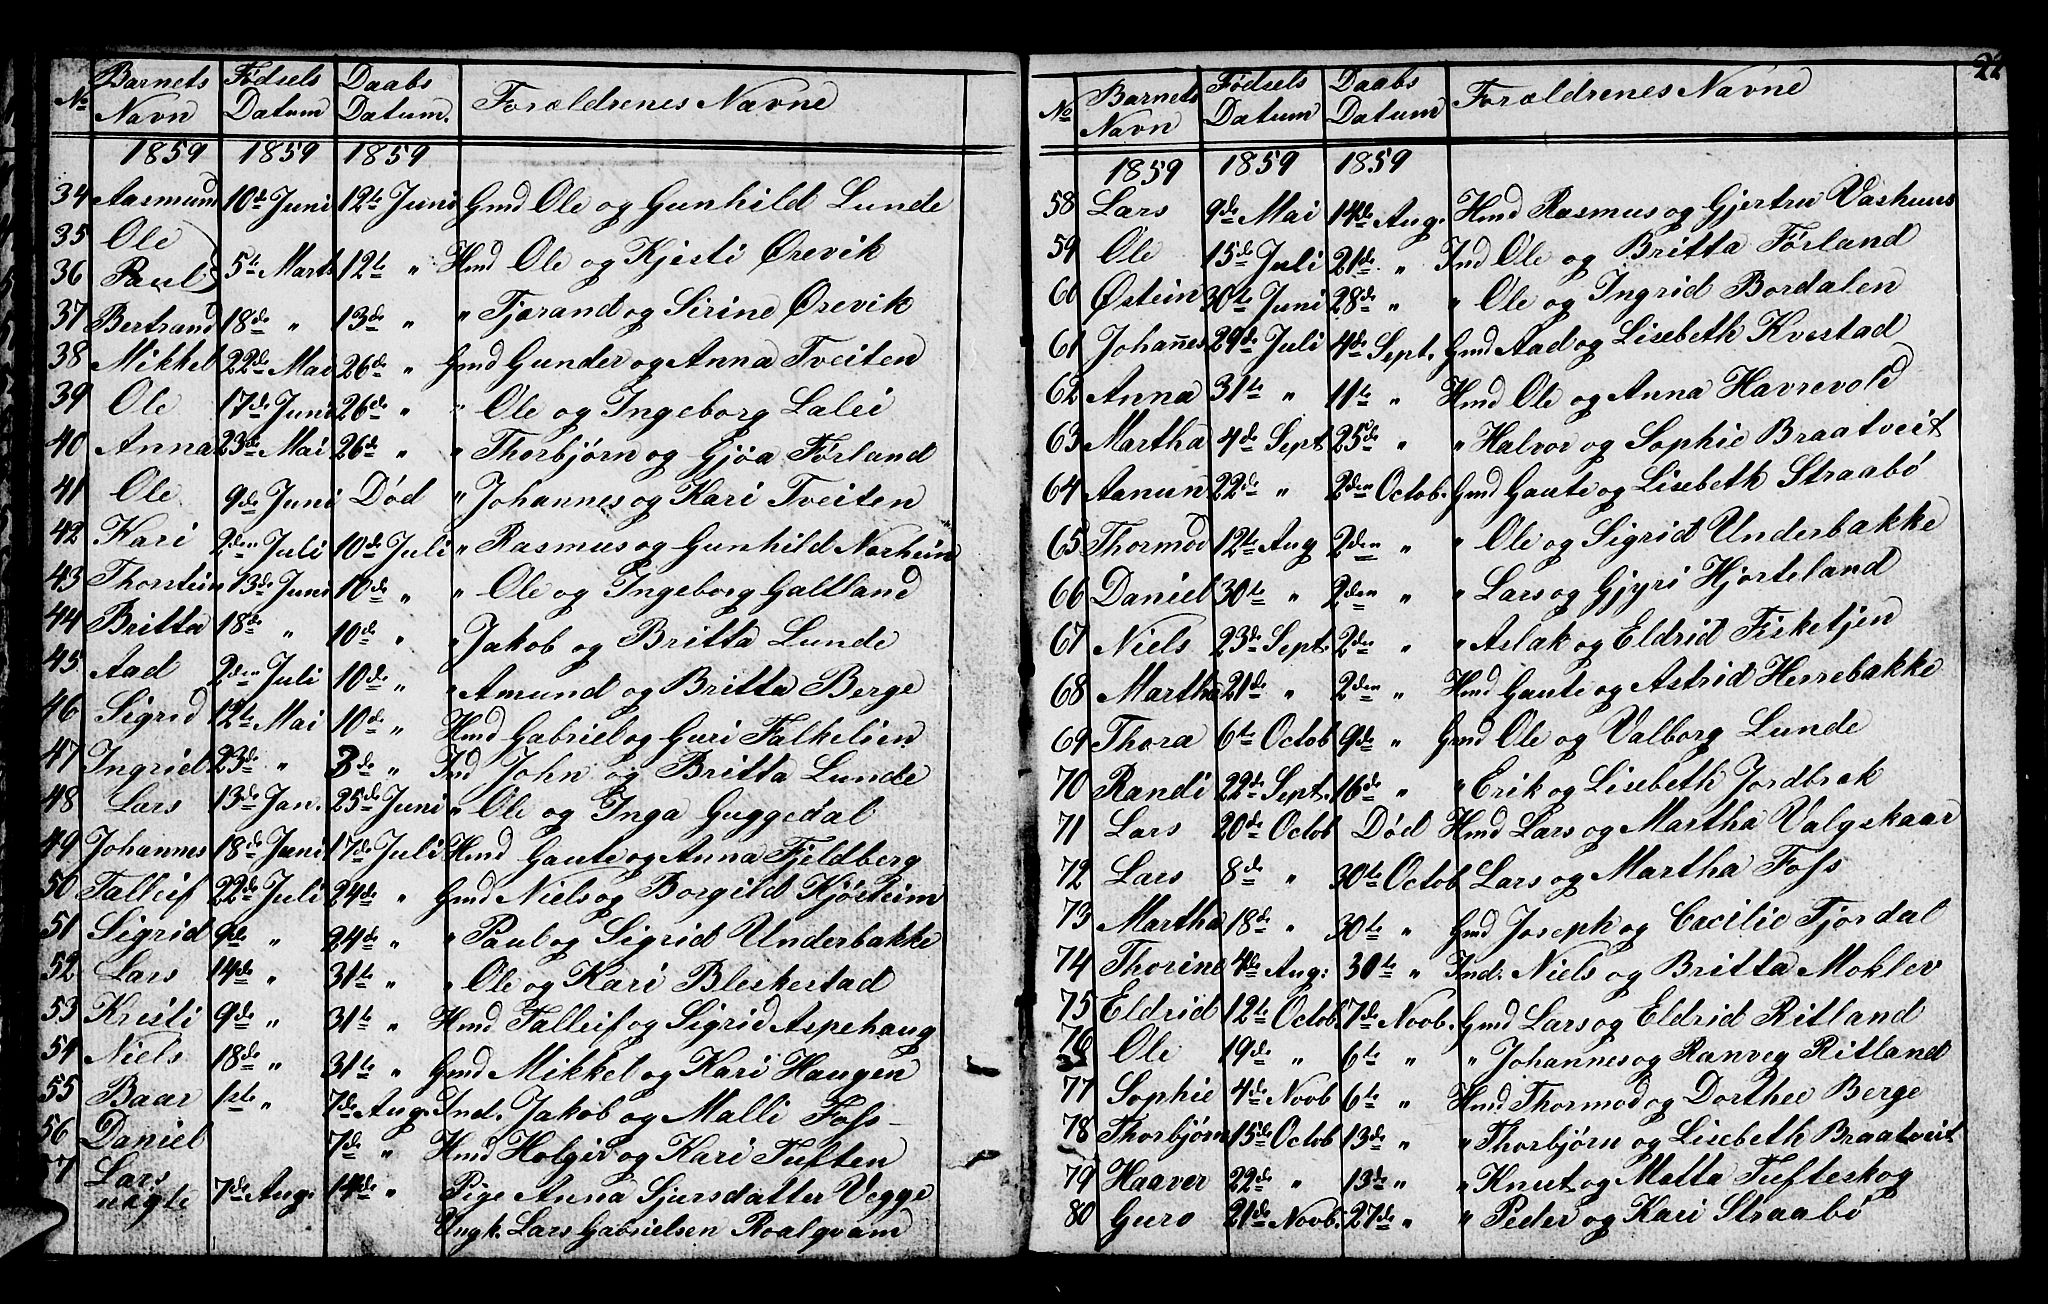 No Barnets Navn Fødsels Datum Daabs Datum. Forældrenes Navne
1859 1859 1859
34 Aasmund 10de Juni 12te Juni Gmd Ole og Gunhild Lunde
35 Ole
36 Paul 5te Marts 12te " Hmd Ole og Kjisti Ørevik
37 Bertrand 18de " 13de " " Tjærand og Sirine Ørevik
38 Mikkel 22de Mai 26de " Gmd Gunder og Anna Tveiten
39 Ole 17de Juni 26de " " Ole og Ingeborg Lalei
40 Anna 23de Mai 26de " " Thorbjørn og Gjøa Førland
41 Ole 9de Juni Død " Johannes og Kari Tveiten
42 Kari 2den Juli 10de Juli " Rasmus og Gunhild Norheim
43 Thorstein 13de Juni 10de " " Ole og Ingeborg Galtland
44 Britta 18de " 10de " " Jakob og Britta Lunde
45 Aad 2den Juli 10de " " Amund og Britta Berge
46 Sigrid 12te Mai 10de " Hmd Gabriel og Guri Falkelien
47 Ingrid 23de " 3de " Ind John og Britta Lunde
48 Lars 13de Jan. 25de Juni " Ole og Inga Guggedal
49 Johannes 18de Juni 17de Juli Hmd Gaute og Anna Fjeldberg
50 Talleif 22de Juli 24de " Gmd Niels og Borgild Kjösteim
51 Sigrid 9de " 24de " " Paul og Sigrid Underbakke
52 Lars 14de " 31te " " Ole og Kari Bleskestad
53 Kristi 9de " 31te " Hmd Talleif og Sigrid Aspehaug
54 Niels 18de " 31te " Gmd Mikkel og Kari Haugen
55 Baar 1ste " 7de Aug. Ind. Jakob og Malli Foss
56 Daniel 7de " Hmd Holgir og Kari Tuften
7 Lars uægte 7de Aug. 14de " Pige Anna Sjursdatter Vegge
Ungk. Lars Gabrielsen Roalqvam
22
No Barnets Navn Fødsels Datum Daabs Datum Forældrenes Navne
1859 1859 1859
58 Lars 9de Mai 14de Aug. Hmd Rasmus og Gjertru Vashuus
59 Ole 15de Juli 21de " Ind Ole og Britta Førland
60 Østein 30te Juni 28de " " Ole og Ingrid Bordalen
61 Johannes 29de Juli 4de Sept. Gmd Aad og Lisebeth Kvestad
62 Anna 31te " 11te " Hmd Ole og Anna Havrevold
63 Martha 4de Sept. 25de " " Halvor og Sophie Braatveit
64 Aanun 22de " 2den Octob. Gmd Gaute og Lisebeth Straabø
65 Thormod 12te Aug 2den " " Ole og Sigrid Underbakke
66 Daniel 30te " 2den " " Lars og Gjyri Hjorteland
67 Niels 23de Sept. 2den " " Aslak og Eldrid Fisketjen
68 Martha 21de " 2den " Hmd Gaute og Astrid Herrebakke
69 Thora 6te Octob 9de " Gmd Ole og Valborg Lunde
70 Randi 22de Sept. 16de " " Erik og Lisebeth Jordbrek
71 Lars 20de Octob Død Hmd Lars og Martha Valgskaar
72 Lars 8de " 30te Octob Lars og Martha Foss
73 Martha 18de " 30te " Gmd Joseph og Cæcilie Fjordal
74 Thorine 4de Aug: 30te " Ind. Niels og Britta Moklev
75 Eldrid 12te Octob. 7de Novb. Gmd Lars og Eldrid Ritland
76 Ole 19de " 6te " " Johannes og Ranveg Ritland
77 Sophie 4de Novb 6te " Hmd Thormod og Dorthee Berge
78 Thorbjørn 15de Octob 13de " " Thorbjørn og Lisebeth Braatveit
79 Haaver 22de " 13de " " Knut og Matta Tufteskog
80 Guro 21de Novb. 27de " " Peder og Kari Straabø